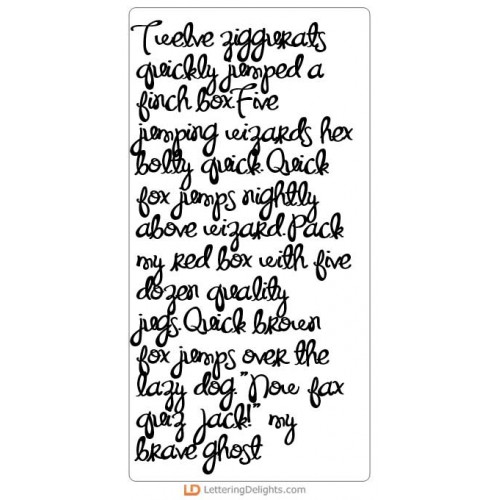 Twelve ziggurats
quickly jumped a
finch box.Five
jumping wizards hex
bolty quick.Quick
fox jumps nightly
above wizard.Pack
my red box with five
dozen quality
jugs.Quick brown
fox jumps over the
lazy dog."Now fax
quiz Jack!" my
brave ghost
LD LetteringDelights.com